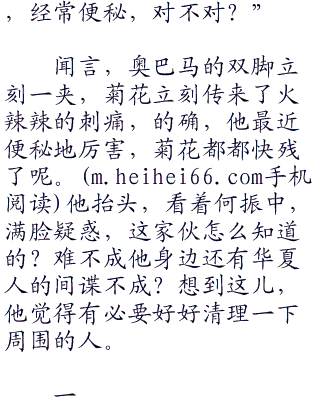 ，经常便秘，对不对？”
闻言，奥巴马的双脚立
刻一夹，菊花立刻传来了火
辣辣的刺痛，的确，他最近
便秘地厉害，菊花都都快残
了呢。(m.heihei66.com手机
阅读)他抬头，看着何振中，
满脸疑惑，这家伙怎么知道
的？难不成他身边还有华夏
人的间谍不成？想到这儿，
他觉得有必要好好清理一下
周围的人。
一